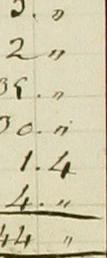 5. "
2 "
35. "
30. "
1. 4
4. "
44 "